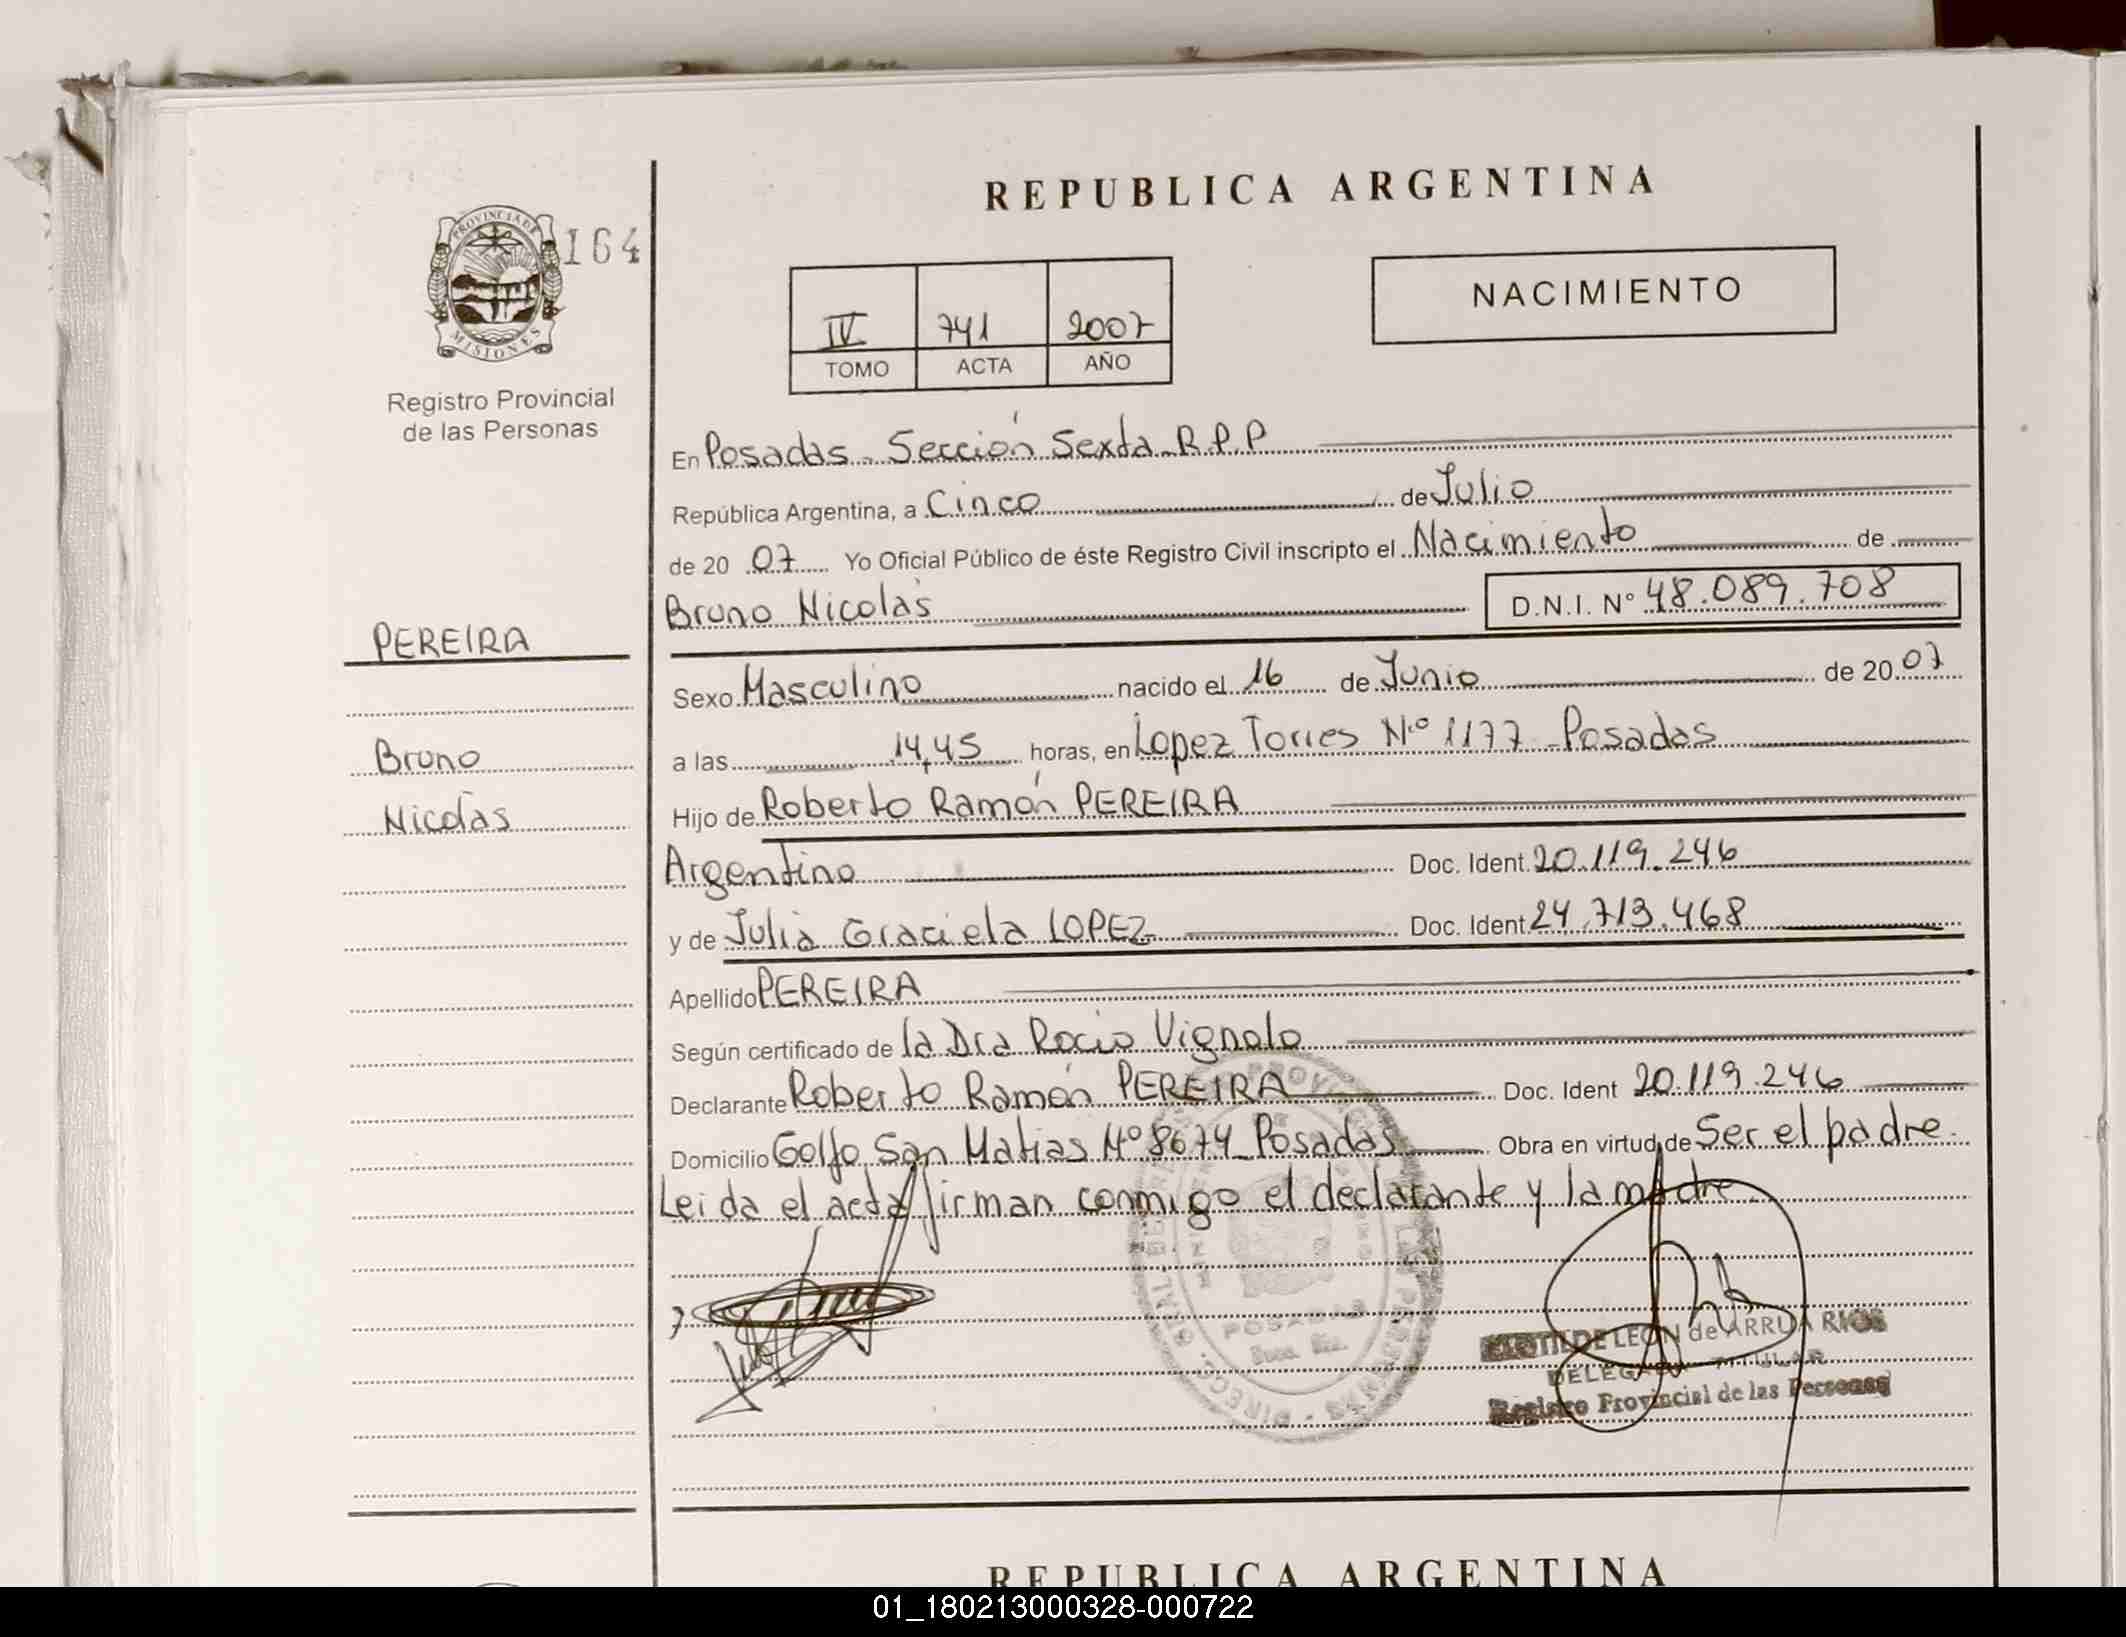 REPUBLICA ARGENTINA
PROVINCIA DE
MISIONES
164
Registro Provincial
de las Personas
IV 741 2007
TOMO ACTA AÑO
NACIMIENTO
En Posadas - Sección Sexta - R.P.P
República Argentina, a Cinco de Julio
de 20 07 Yo Oficial Público de éste Registro Civil inscripto el Nacimiento de
Bruno Nicolás D.N.I. Nº 48.089.708
PEREIRA
Bruno
Nicolás
Sexo Masculino nacido el 16 de Junio de 20 07
a las 14,45 horas, en Lopez Torres Nº 1177 - Posadas
Hijo de Roberto Ramón PEREIRA
Argentino Doc. Ident. 20.119.246
y de Julia Graciela LOPEZ Doc. Ident 24.713.468
Apellido PEREIRA
Según certificado de la Dra Rocio Vignolo
Declarante Roberto Ramón PEREIRA Doc. Ident 20.119.246
Domicilio Golfo San Matias Nº 8674 - Posadas Obra en virtud de Ser el padre.
Leida el acta firman conmigo el declarante y la madre.
POSADAS
LEON de ARRUA RIOS
DELEGADA TITULAR
Registro Provincial de las Personas
REPUBLICA ARGENTINA
01_180213000328-000722